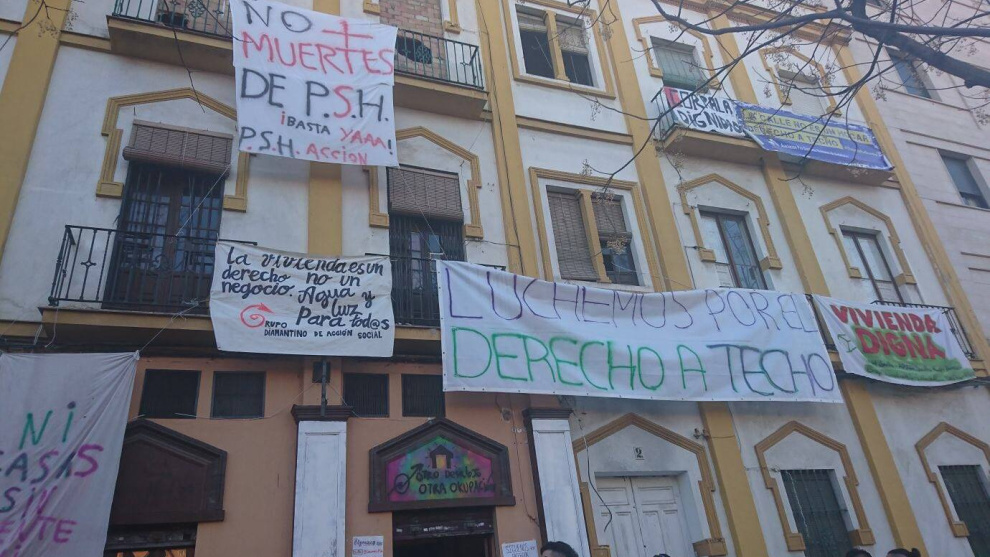 NO
MUERTES
DE P.S.H.
¡BASTA YAAA!
P.S.H. ACCIÓN
POR LA
DIGNIDAD
DERECHO A TECHO
La vivienda es un
derecho no un
negocio. Agua y
luz
Para tod@s
GRUPO
DIAMANTINO DE ACCIÓN SOCIAL
LUCHEMOS POR EL
DERECHO A TECHO
VIVIENDA
DIGNA
NI
CASAS
SIN
OTRA OKUPACIÓN
2